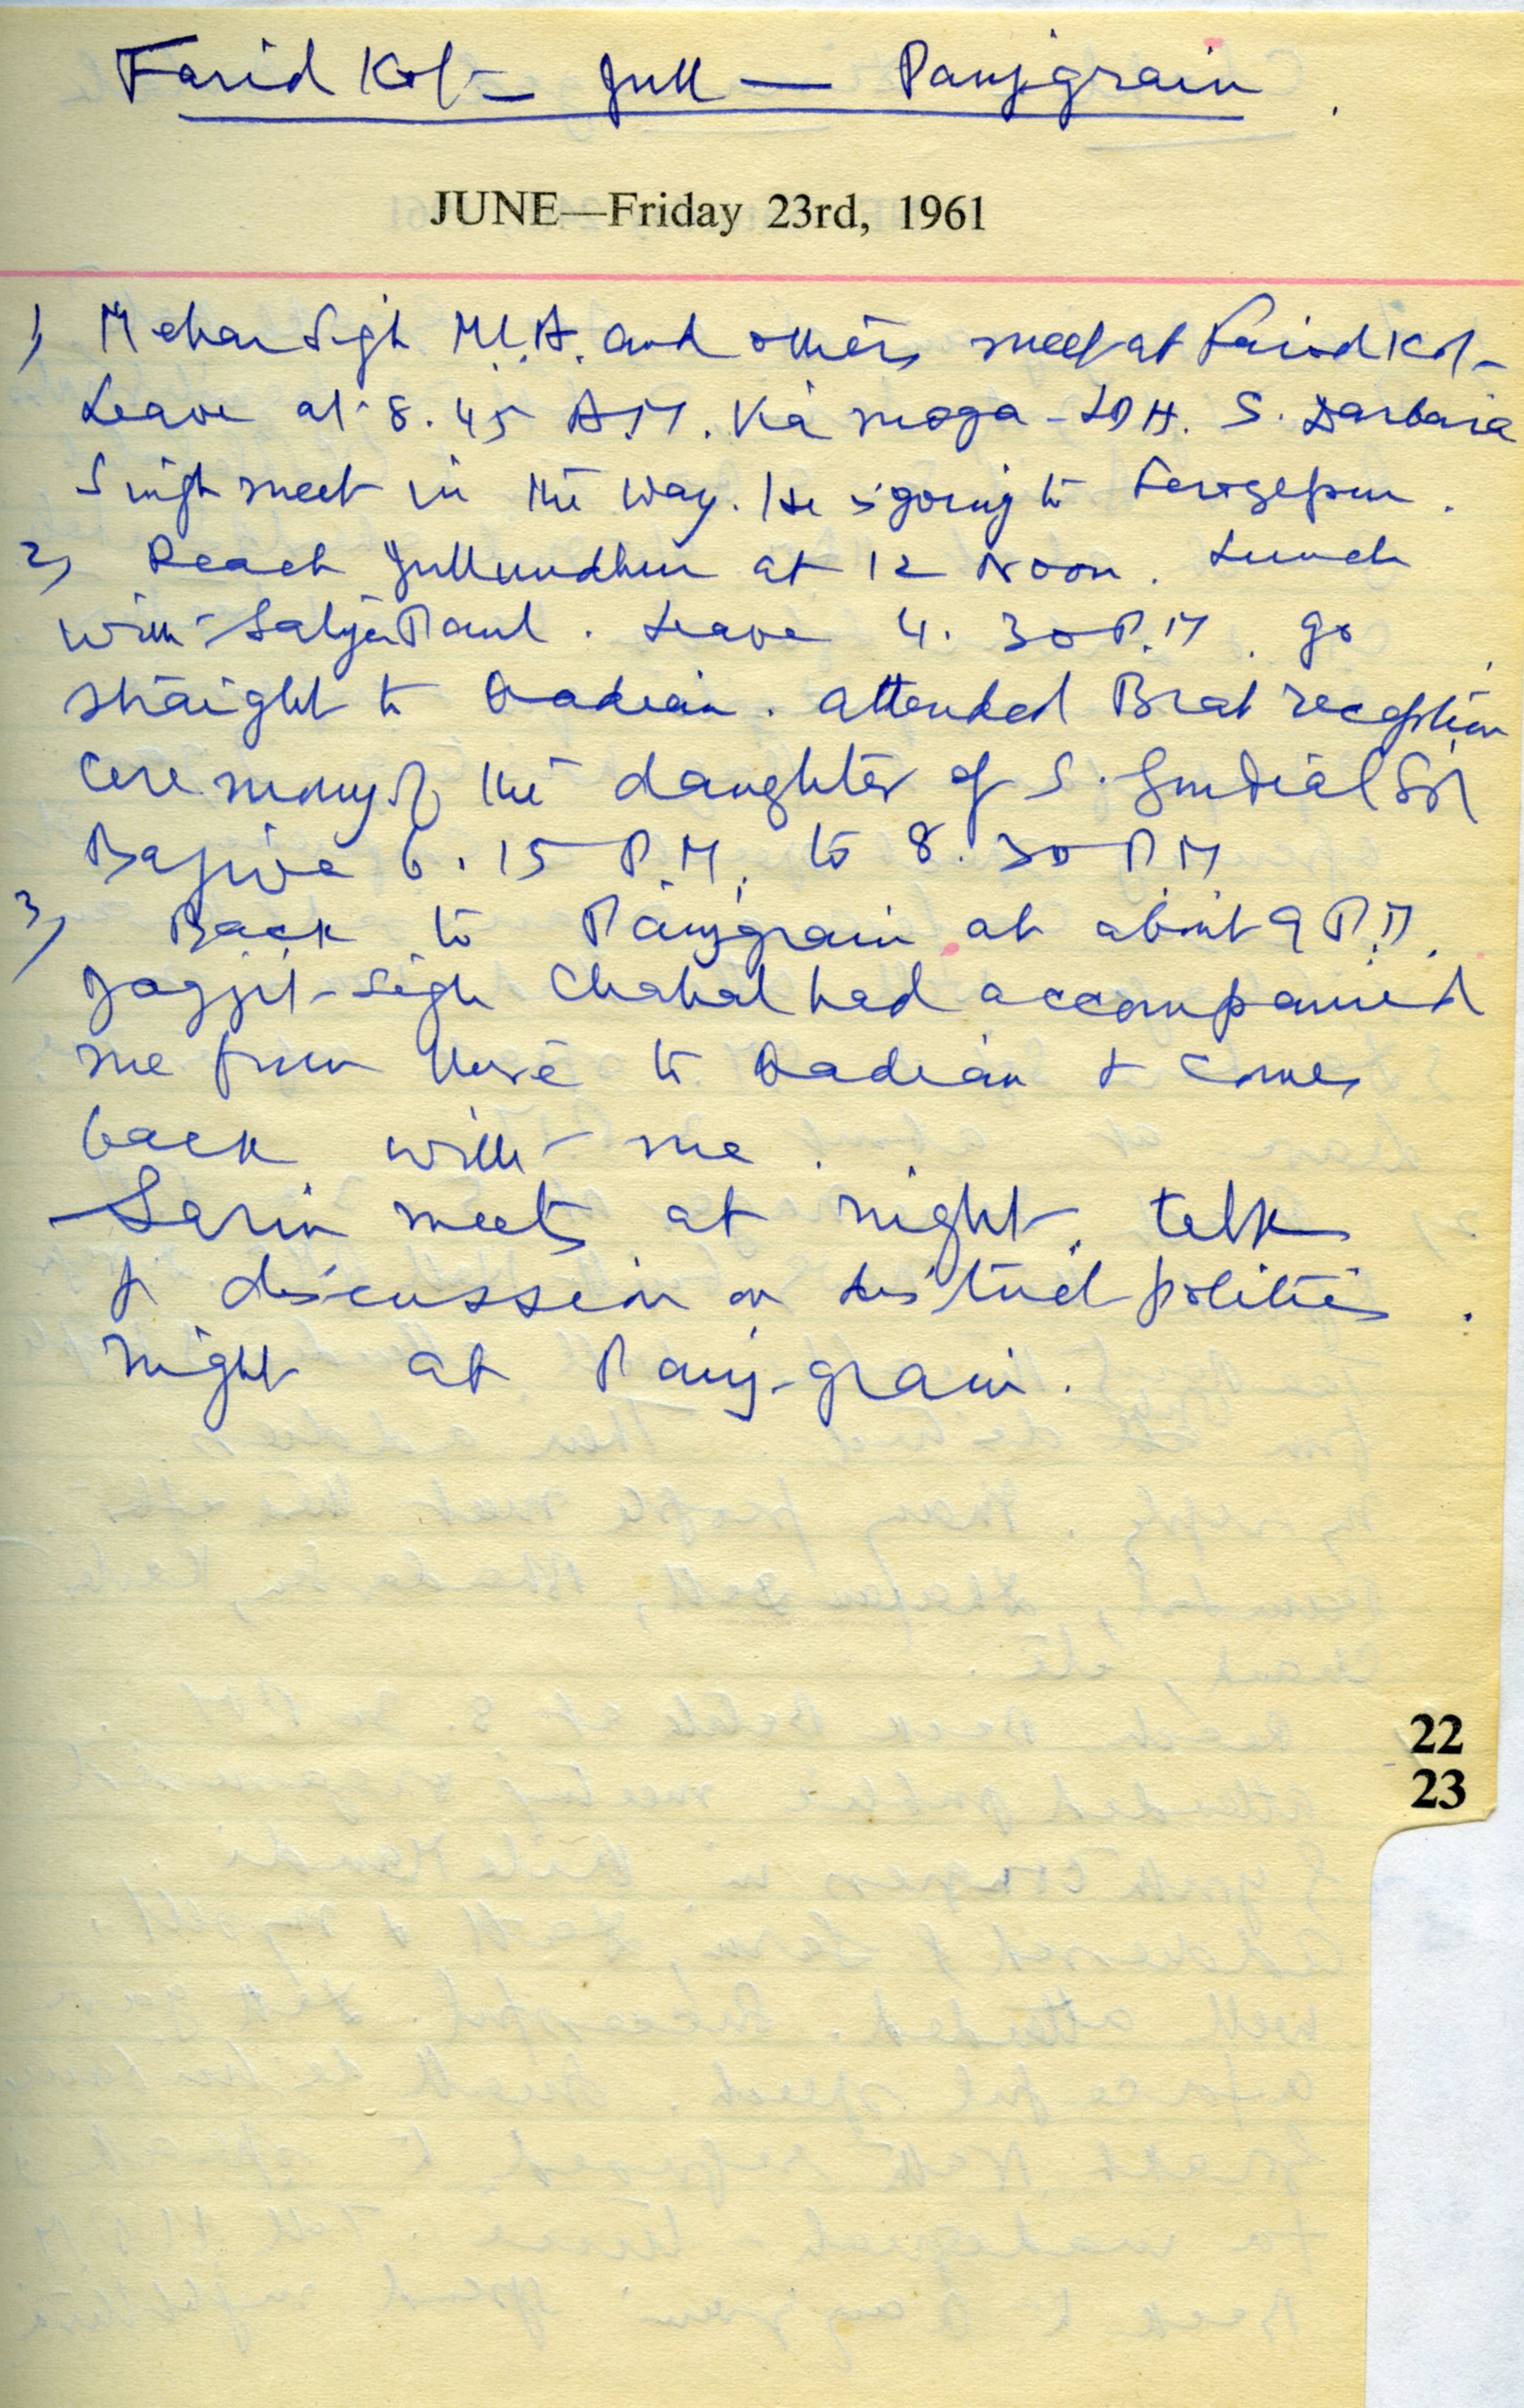 Farid Kot — Jull — Panjgrain
JUNE—Friday 23rd, 1961
1) Mehar Sigh M.L.A. and others meet at Farid Kot
Leave at 8.45 A.M. Via Moga - LDH. S. Darbara
Singh meet in the way. He is going to Ferozepur.
2) Reach Jullundhur at 12 Noon. Lunch
with Satya Paul. Leave 4.30 P.M. go
straight to Qadian. attended Brat reception
ceremony of the daughter of S. Gurdial
Bajwa 6.15 P.M. to 8.30 P M
3) Back to Panjgrain at about 9 P.M.
Jagjit Sigh Chahal had accompanied
me from there to Qadian & comes
back with me.
Sarin meets at night. talk
& discussion on district politics.
night at Panj-grain.
22
23